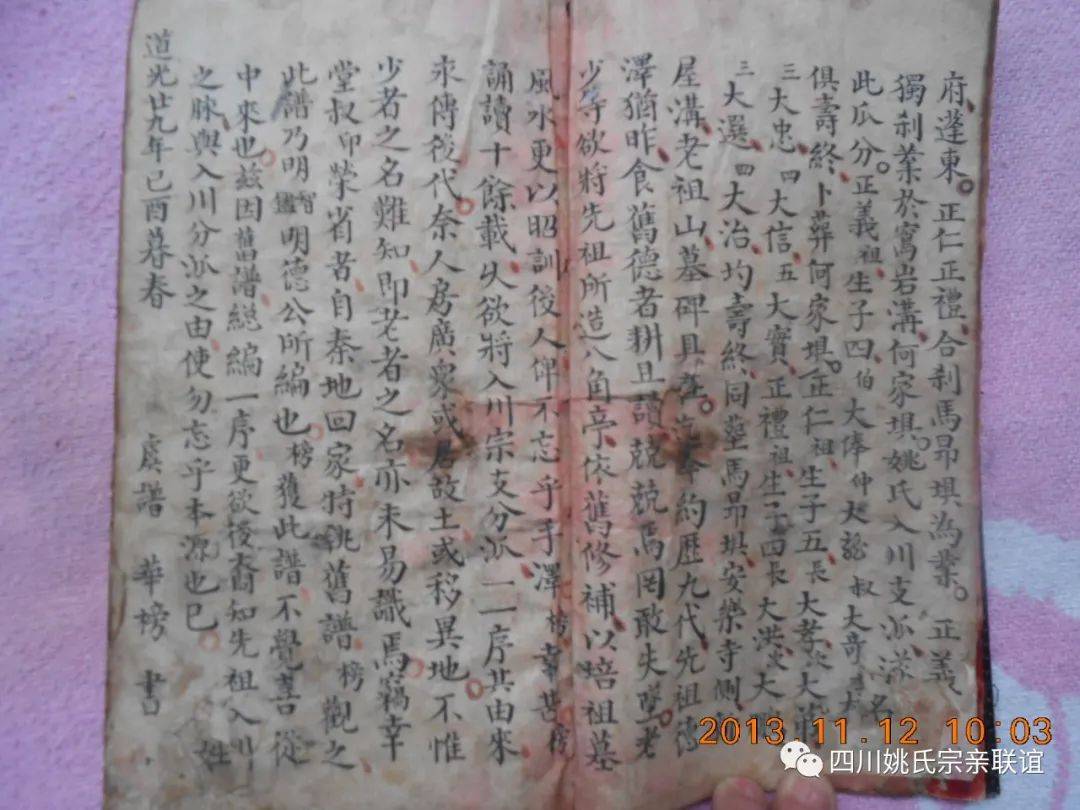 府蓬東正仁正禮合剎馬昂垻為業正義
獨剎業於窩岩溝何家垻姚氏入川支派
此瓜分正義祖生子四伯大俸仲大 叔大奇
俱壽終卜葬何家垻正仁祖生子五長大孝次大
三大忠四大信五大實正禮祖生子四長大洪次大
三大選四大治均壽終同塟馬昂垻安樂寺側
屋溝老祖山墓碑具 約歷九代先祖德
澤猶昨食舊德者耕且讀兢兢焉罔敢失墜老
少等欲將先祖所造八角亭依舊修補以培祖墓
風水更以昭訓後人俾不忘乎手澤榜幸芸榜
誦讀十餘載久欲將入川宗支分派一一序其由來
永傳後代奈人房廣衆或居故土或移異地不惟
少者之名難知即老者之名亦未易識焉竊幸
堂叔印榮省者自秦地回家特挑舊譜榜觀之
此譜乃明 明德公所編也榜獲此譜不覺喜從
中來也茲因舊譜總編一序更欲後裔知先祖入川
之脉與入川分派之由使勿忘乎本源也已 姓
道光廿九年己酉暮春 虞譜 華榜 書
2013.11.12 10:03
四川姚氏宗亲联谊